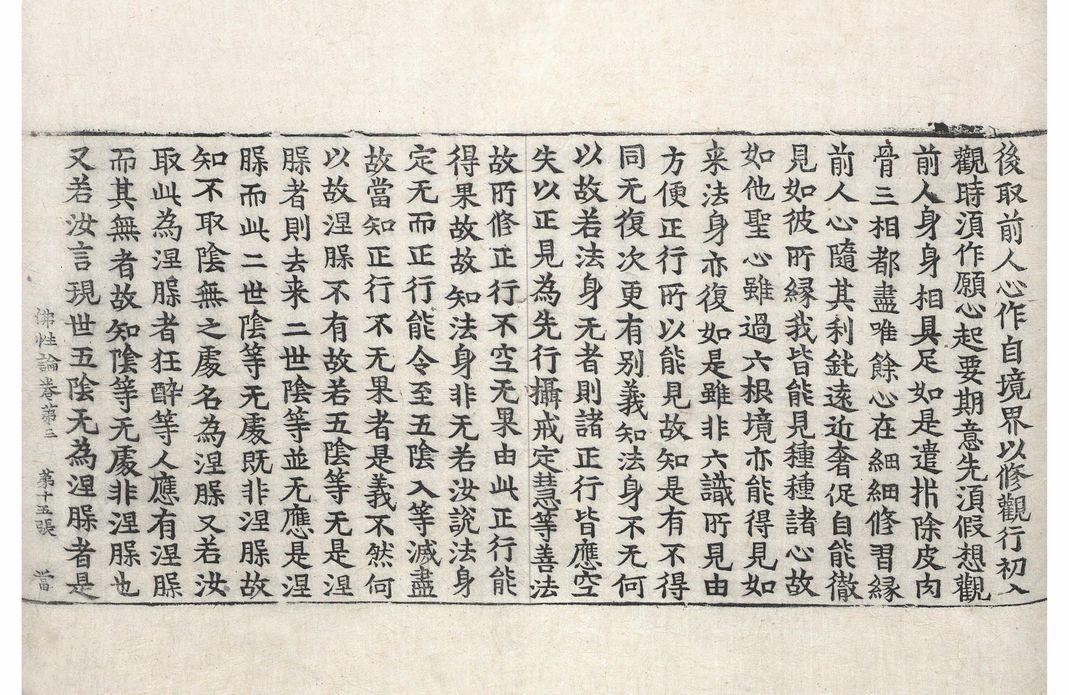 後取前人心作自境界以修觀行初入
觀時湏作願心起要期意先湏假想觀
前人身身相具足如是遣拆除皮肉
骨三相都盡唯餘心在細細修習縁
前人心隨其利鈍逺近奢促自能徹
見如彼所縁我皆能見種種諸心故
如他聖心雖過六根境亦能得見如
来法身亦復如是雖非六識所見由
方便正行所以能見故知是有不得
同无復次更有别義知法身不无何
以故若法身无者則諸正行皆應空
失以正見為先行攝戒定慧等善法
故所修正行不空无果由此正行能
得果故故知法身非无若汝說法身
定无而正行能令至五陰入等滅盡
故當知正行不无果者是義不然何
以故涅槃不有故若五陰等无是涅
槃者則去来二世陰等並无應是涅
槃而此二世陰等无處既非涅槃故
知不取陰無之處名為涅槃又若汝
取此為涅槃者狂醉等人應有涅槃
而其無者故知陰等无處非涅槃也
又若汝言現世五陰无為涅槃者是
佛性論卷第三 第十五張 當